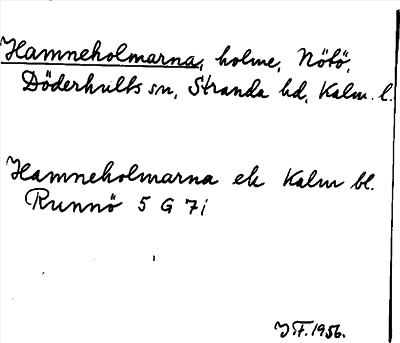 Hamneholmarna, holme, Nötö,
Döderhults sn, Stranda hd, Kalm. l.
Hamneholmarna ek Kalm bl.
Runnö 5 G 7i
J F. 1956.